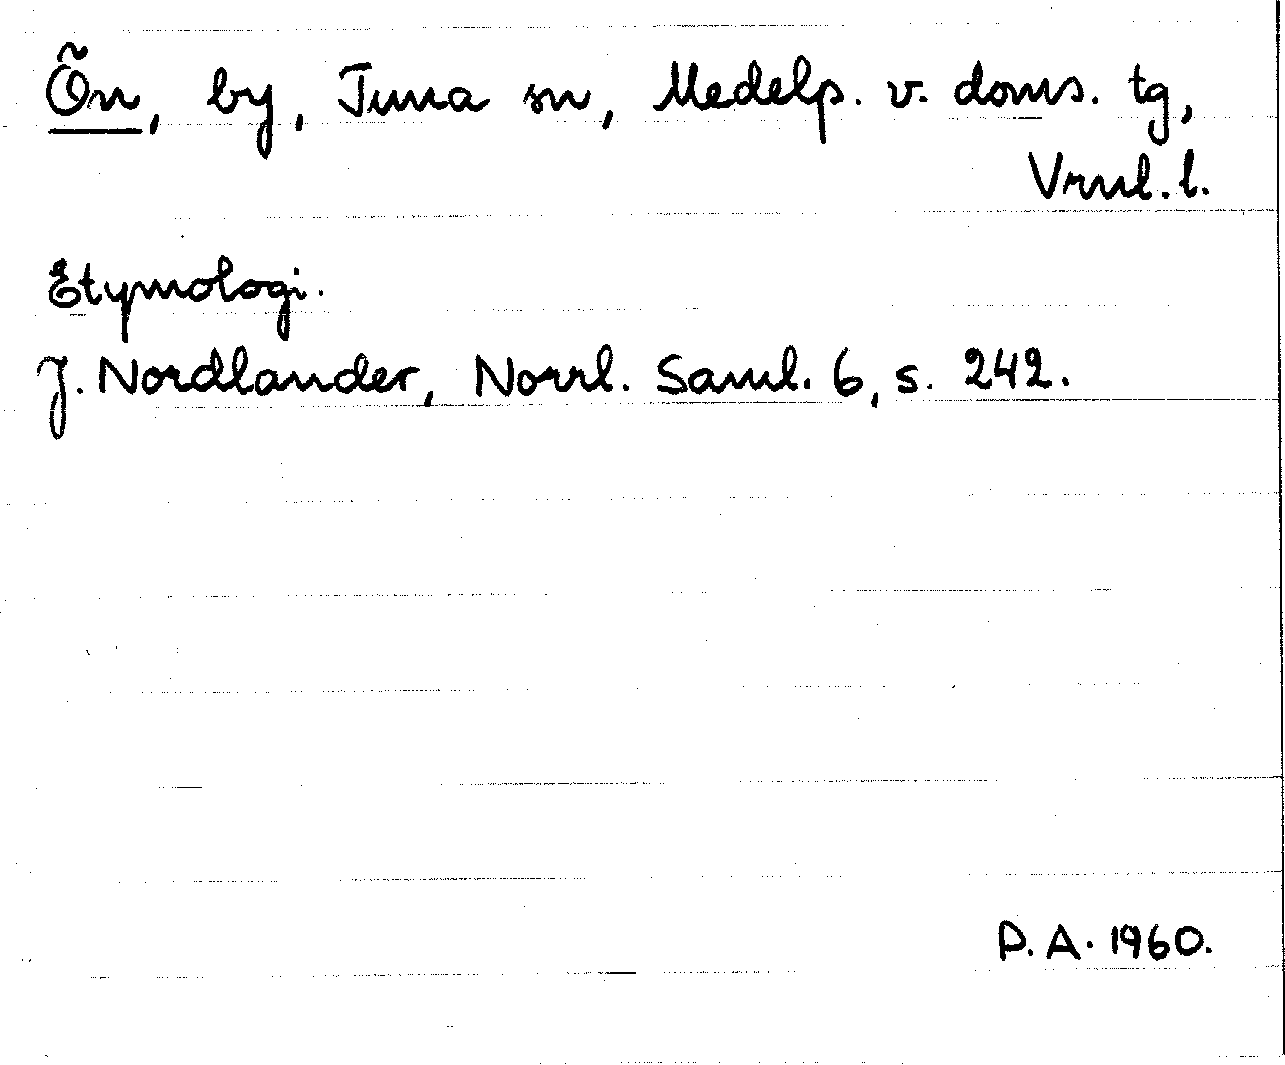 Ön, by, Tuna sn, Medelp. v. doms. tg,
Vrnl. l.
Etymologi.
J. Nordlander, Norrl. Saml. 6, s. 242.
P. A. 1960.